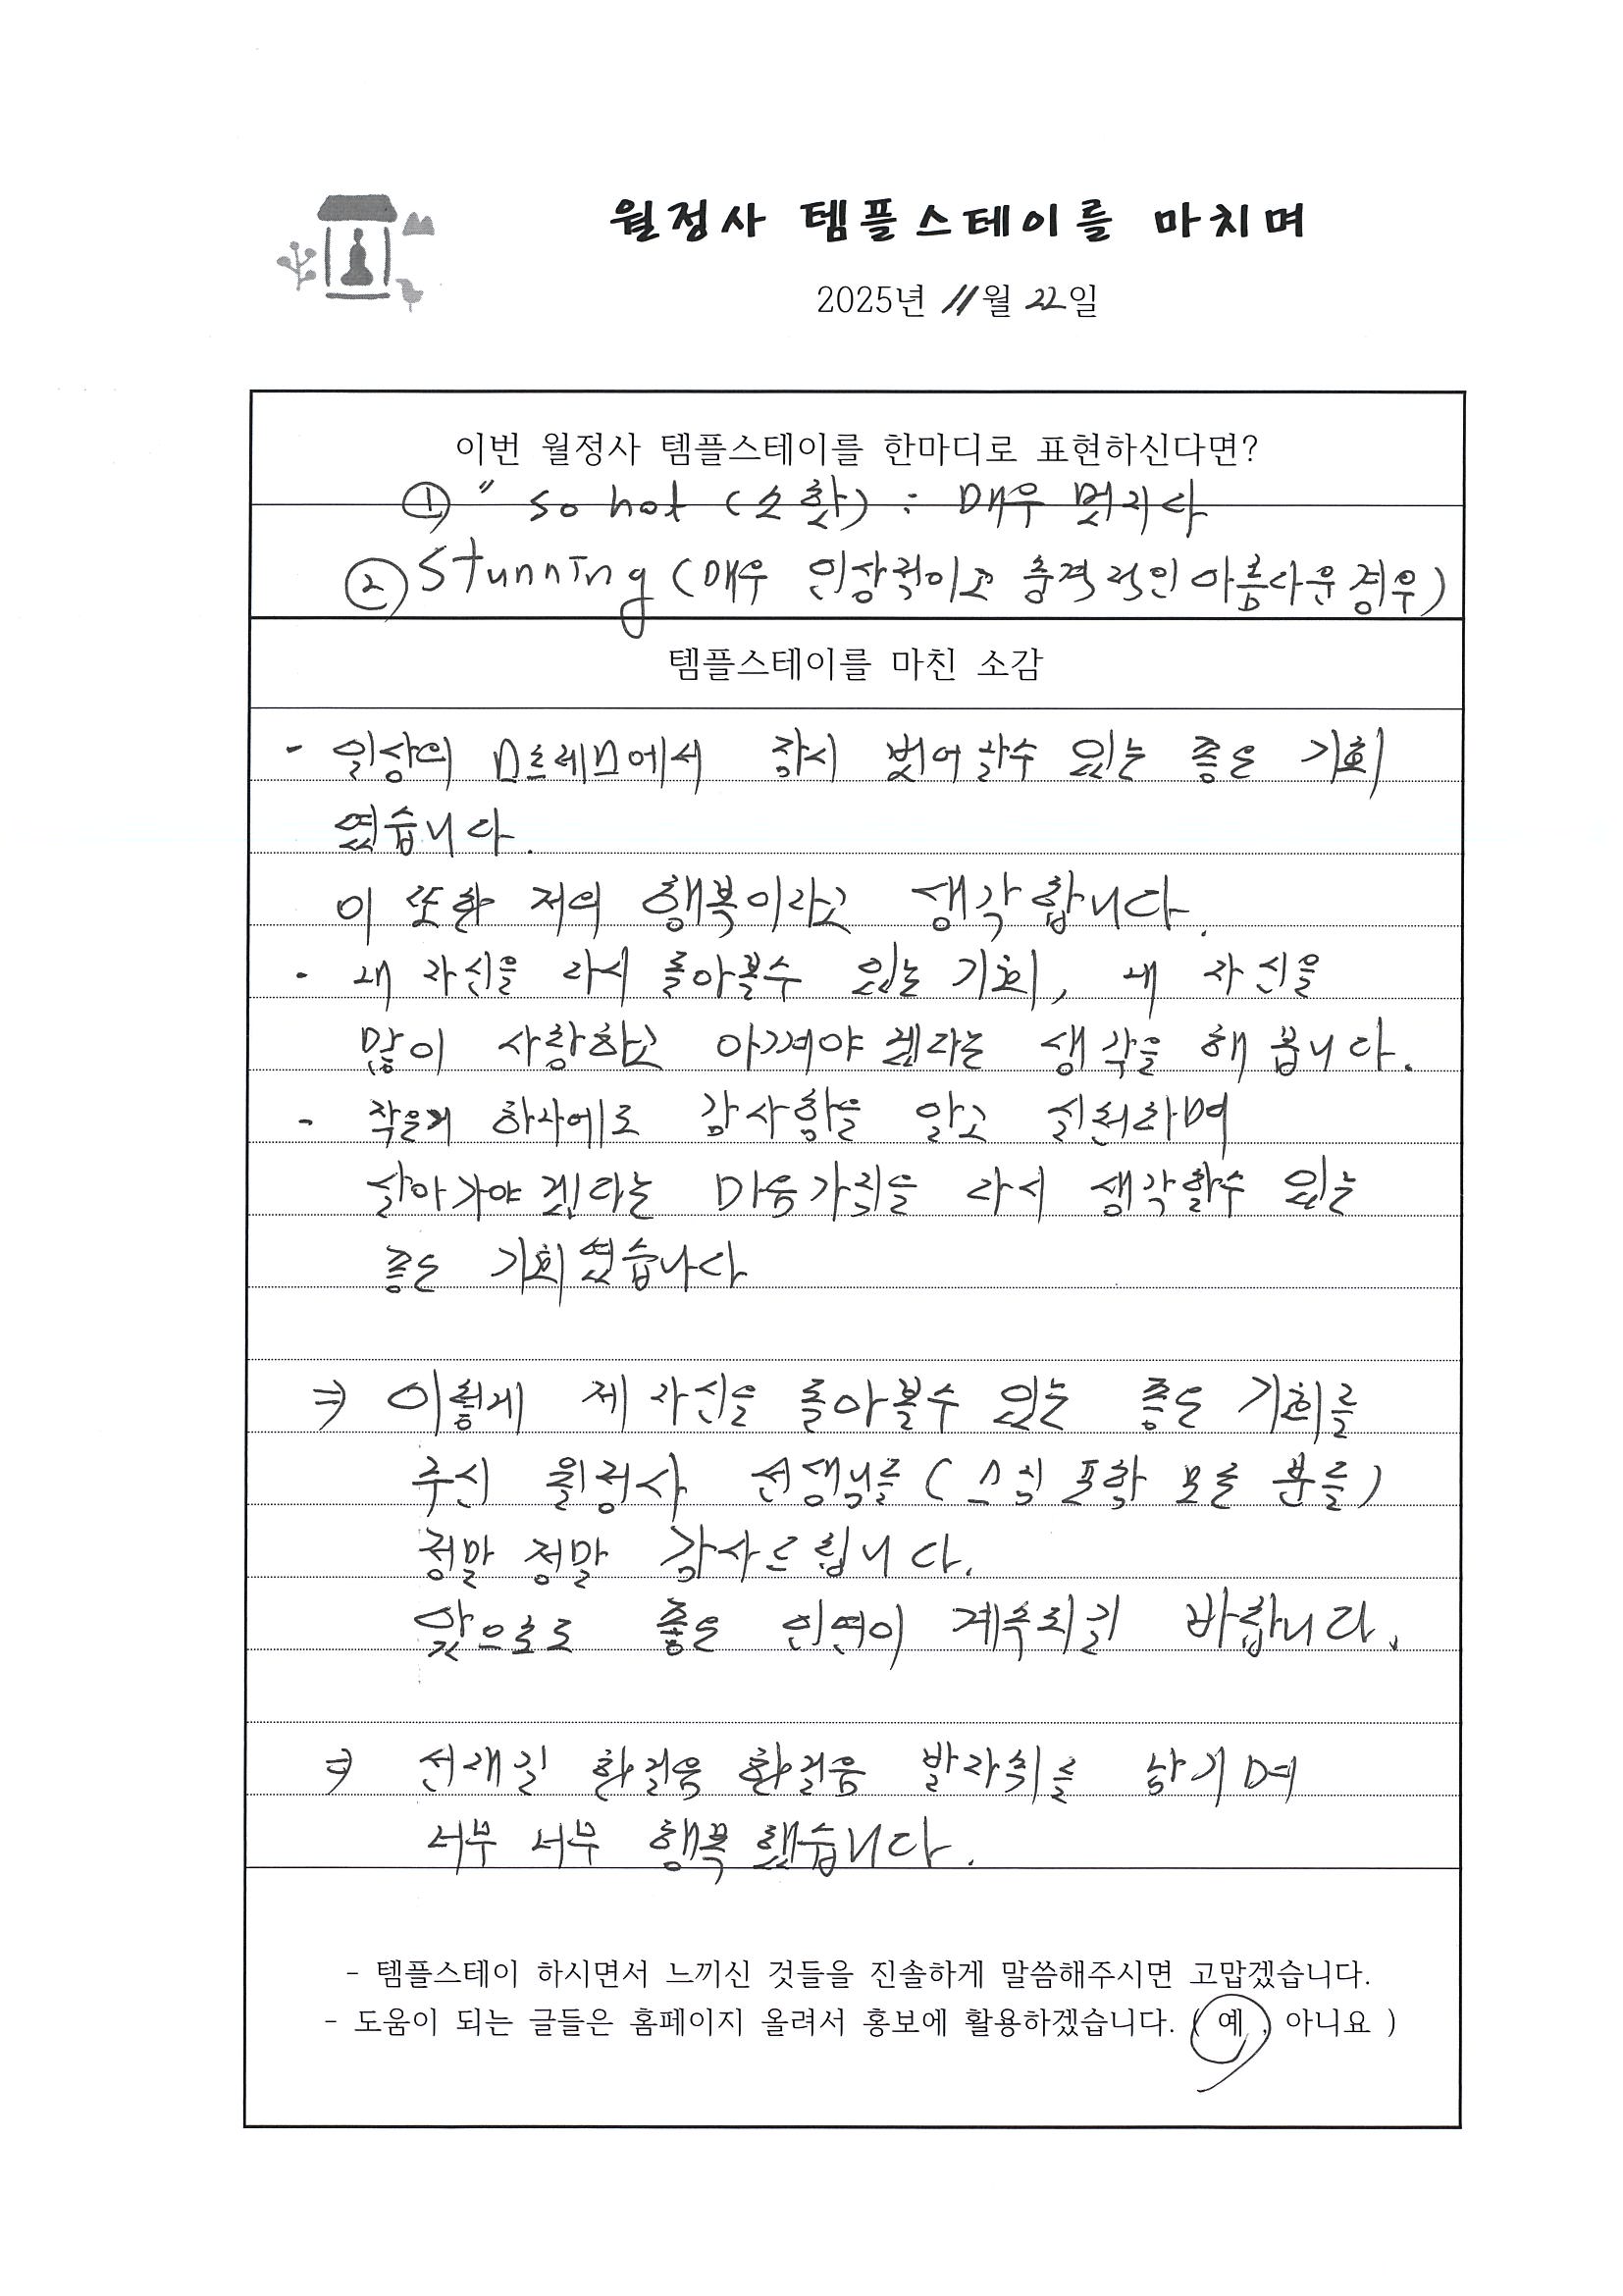 월정사 템플스테이를 마치며
2025년 11월 22일
이번 월정사 템플스테이를 한마디로 표현하신다면?
① " so hot (소핫) : 매우 멋지다
② Stunning (매우 인상적이고 충격적인 아름다운 경우)
템플스테이를 마친 소감
- 일상의 스트레스에서 잠시 벗어날수 있는 좋은 기회
였습니다.
이 또한 저의 행복이라고 생각합니다.
- 내 자신을 다시 돌아볼수 있는 기회, 내 자신을
많이 사랑하고 아껴야 겠다는 생각을 해 봅니다.
- 작은거 하나에도 감사함을 알고 실천하며
살아가야 겠다는 마음가짐을 다시 생각할수 있는
좋은 기회였습니다
⇒ 이렇게 제 자신을 돌아볼수 있는 좋은 기회를
주신 월정사 선생님들 (스님 포함 모든 분들)
정말 정말 감사드립니다.
앞으로도 좋은 인연이 계속되길 바랍니다.
⇒ 선재길 한걸음 한걸음 발자취를 남기며
너무 너무 행복했습니다.
- 템플스테이 하시면서 느끼신 것들을 진솔하게 말씀해주시면 고맙겠습니다.
- 도움이 되는 글들은 홈페이지 올려서 홍보에 활용하겠습니다. ( 예 , 아니요 )